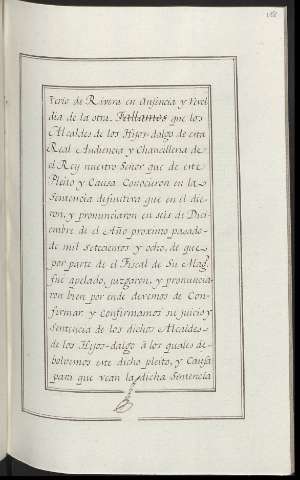 verio de Rivera en Ausencia y Revel
dia de la otra. Fallamos que los
Alcaldes de los Hijos-dalgo de esta
Real Audiencia y Chancilleria de
el Rey nuestro Señor que de este
Pleito y Causa Conocieron en la
Sentencia definitiva que en el die
ron, y pronunciaron en seis de Dici
embre de el Año proximo pasado
de mil setecientos y ocho, de que
por parte de el Fiscal de Su Magd.
fue apelado, juzgaron, y pronuncia
ron bien por ende devemos de Con-
firmar y Confirmamos su juicio y
Sentencia de los dichos Alcaldes
de los Hijos-dalgo â los quales de-
bolvemos este dicho pleito, y Causa
para que vean la dicha Sentencia